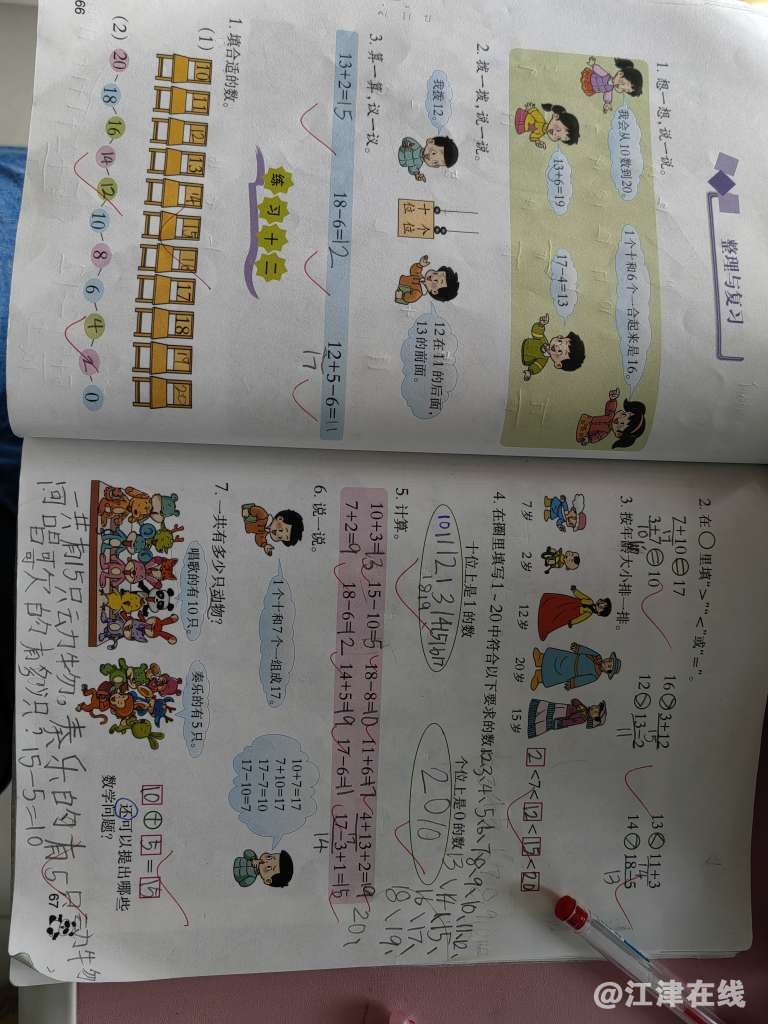 整理与复习
1. 想一想，说一说。
我会从10数到20。
1个十和6个一合起来是16。
13+6=19
17-4=13
2. 拨一拨，说一说。
我拨12。
十位 个位
12在11的后面，13的前面。
3. 算一算，议一议。
13+2=15
18-6=12
12+5-6=11
17
练习十二
1. 填合适的数。
(1)
10 11 12 13 14 15 16 17 18 19 20
(2) 20 18 16 14 12 10 8 6 4 2 0
66
2. 在○里填“>”“<”或“=”。
7+10=17
16>3+12
15
13<11+3
14
3+7=10
10
12>13-2
11
14>18-5
13
3. 按年龄大小排一排。
7岁 2岁 12岁 20岁 15岁
2<7<12<15<20
4. 在圈里填写1~20中符合以下要求的数。
十位上是1的数
个位上是0的数
20 10
5. 计算。
10+3=13 15-10=5 18-8=10 11+6=17 4+13+2=19
7+2=9 18-6=12 14+5=19 17-6=11 17-3+1=15
14
6. 说一说。
1个十和7个一组成17。
10+7=17
7+10=17
17-7=10
17-10=7
7. 一共有多少只动物？
唱歌的有10只。
奏乐的有5只。
10+5=15
还可以提出哪些数学问题？
一共有15只动物，奏乐的有5只动物
唱歌的有多少只？15-5=10
67
@江津在线